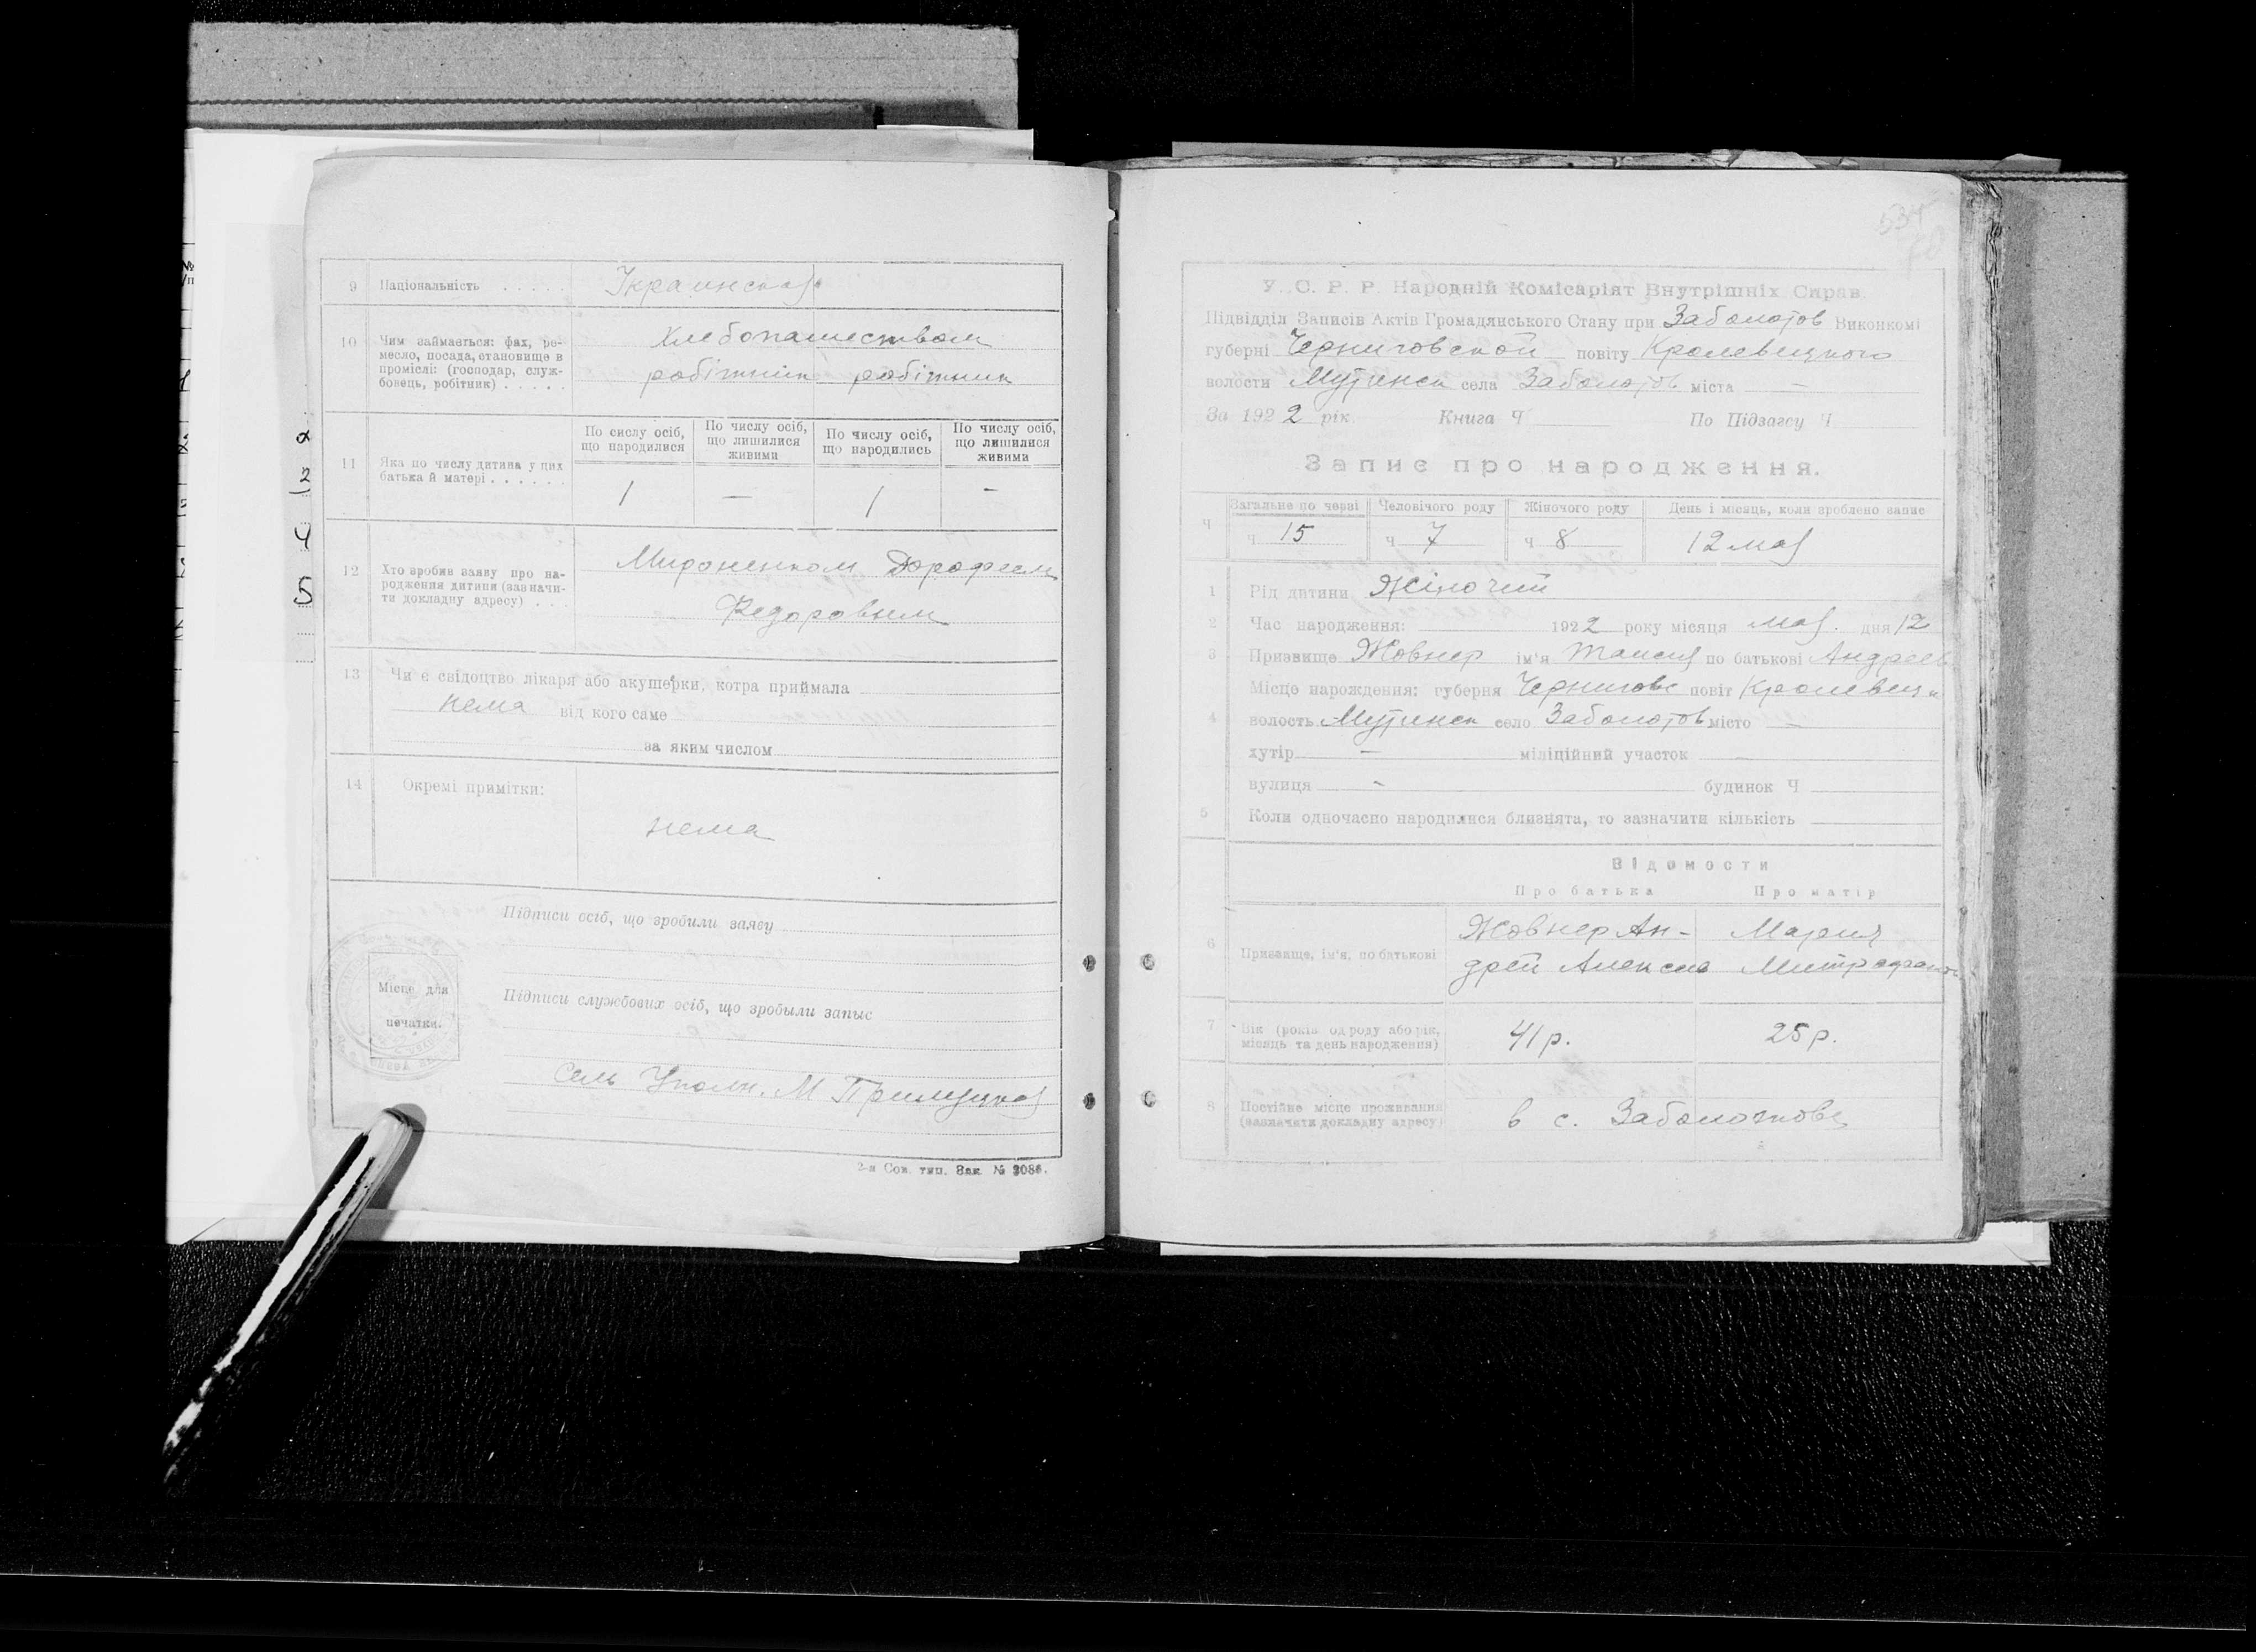 9 Національність . . . . . Украинская
10 Чим займається: фах, ре-
месло, посада, становище в
промислі: (господар, служ-
бовець, робітник) . . . . .
Хлебопашеством
робітник робітник
11 Яка по числу дитина у цих
батька й матері . . . . . .
По сислу осіб,
що народилися
По числу осіб,
що лишилися
живими
По числу осіб,
що народились
По числу осіб,
що лишилися
живими
1 — 1 -
12 Хто зробив заяву про на-
родження дитини (зазначи-
ти докладну адресу) . . .
Мироненком Дорофеем
Федоровым
13 Чи є свідоцтво лікаря або акушерки, котра приймала
нема від кого саме
за яким числом
14 Окремі примітки:
нема
Підписи осіб, що зробили заяву
Місце для
печатки.
Підписи службових осіб, що зробыли запыс
Сель Уполн. М
2-я Сов. тип. Зак. №
2
12
4
5
534
У. С. Р. Р. Народній Комісаріят Внутрішніх Справ.
Підвідділ Записів Актів Громадянського Стану при Заболотов Виконкомі
губерні Черниговской повіту Кролевецкого
волости Мутинск села Заболотов міста —
За 1922 рік Книга Ч По Підзагсу Ч
Запис про народження.
Ч
Загальне по черзі Человічого роду Жіночого роду День і місяць, коли зроблено запис
ч 15 ч 7 ч 8 12 мая
1 Рід дитини Жіночий
2 Час народження: 1922 року місяця мая. дня 12
3 Призвище Жовнер ім'я Таисия по батькові Андреев
Місце нарождення: губерня Чернигове повіт Кролевец
4 волость Мутинск село Заболотов місто —
хутір — міліційний участок —
вулиця - будинок Ч
5 Коли одночасно народилися близнята, то зазначити кількість
Відомости
Про батька Про матір
6 Призвище, ім'я, по батькові
Жовнер Ан- Мария
дрей Алексеев Митрофанов
7 Вік (років од роду або рік,
місяць та день народження)
41 р. 25 р.
8 Постійне місце проживання
(зазначити докладну адресу)
в с. Заболотове